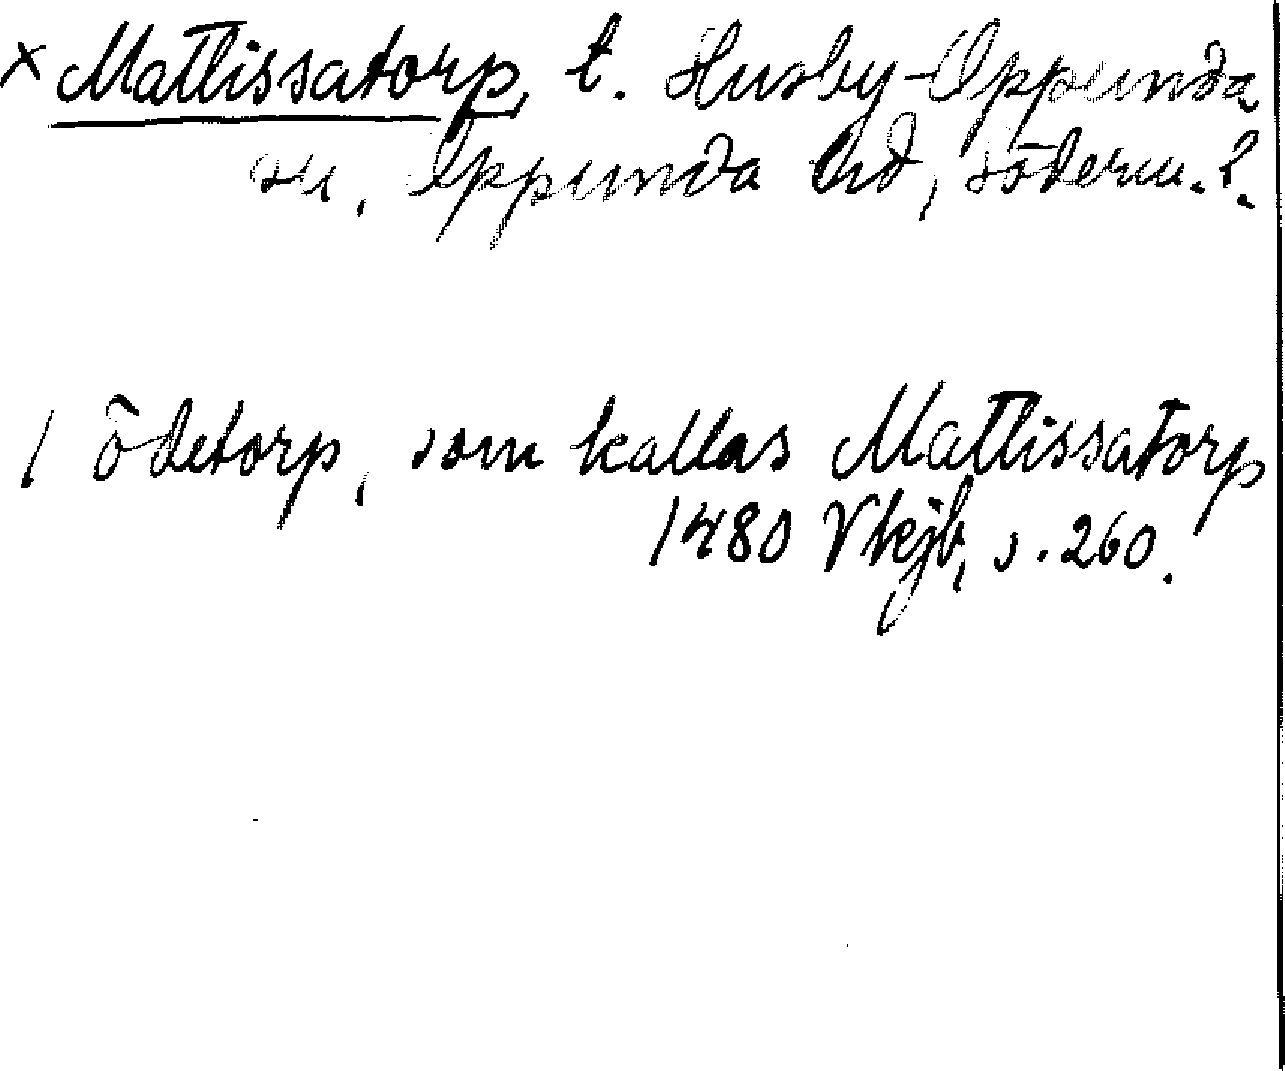 × Mattissatorp, t. Husby-Oppunda
sn, Oppunda hd, Söderm. l.
1 ödetorp, som kallas Mattissatorp
1480 Vkjb, s. 260.